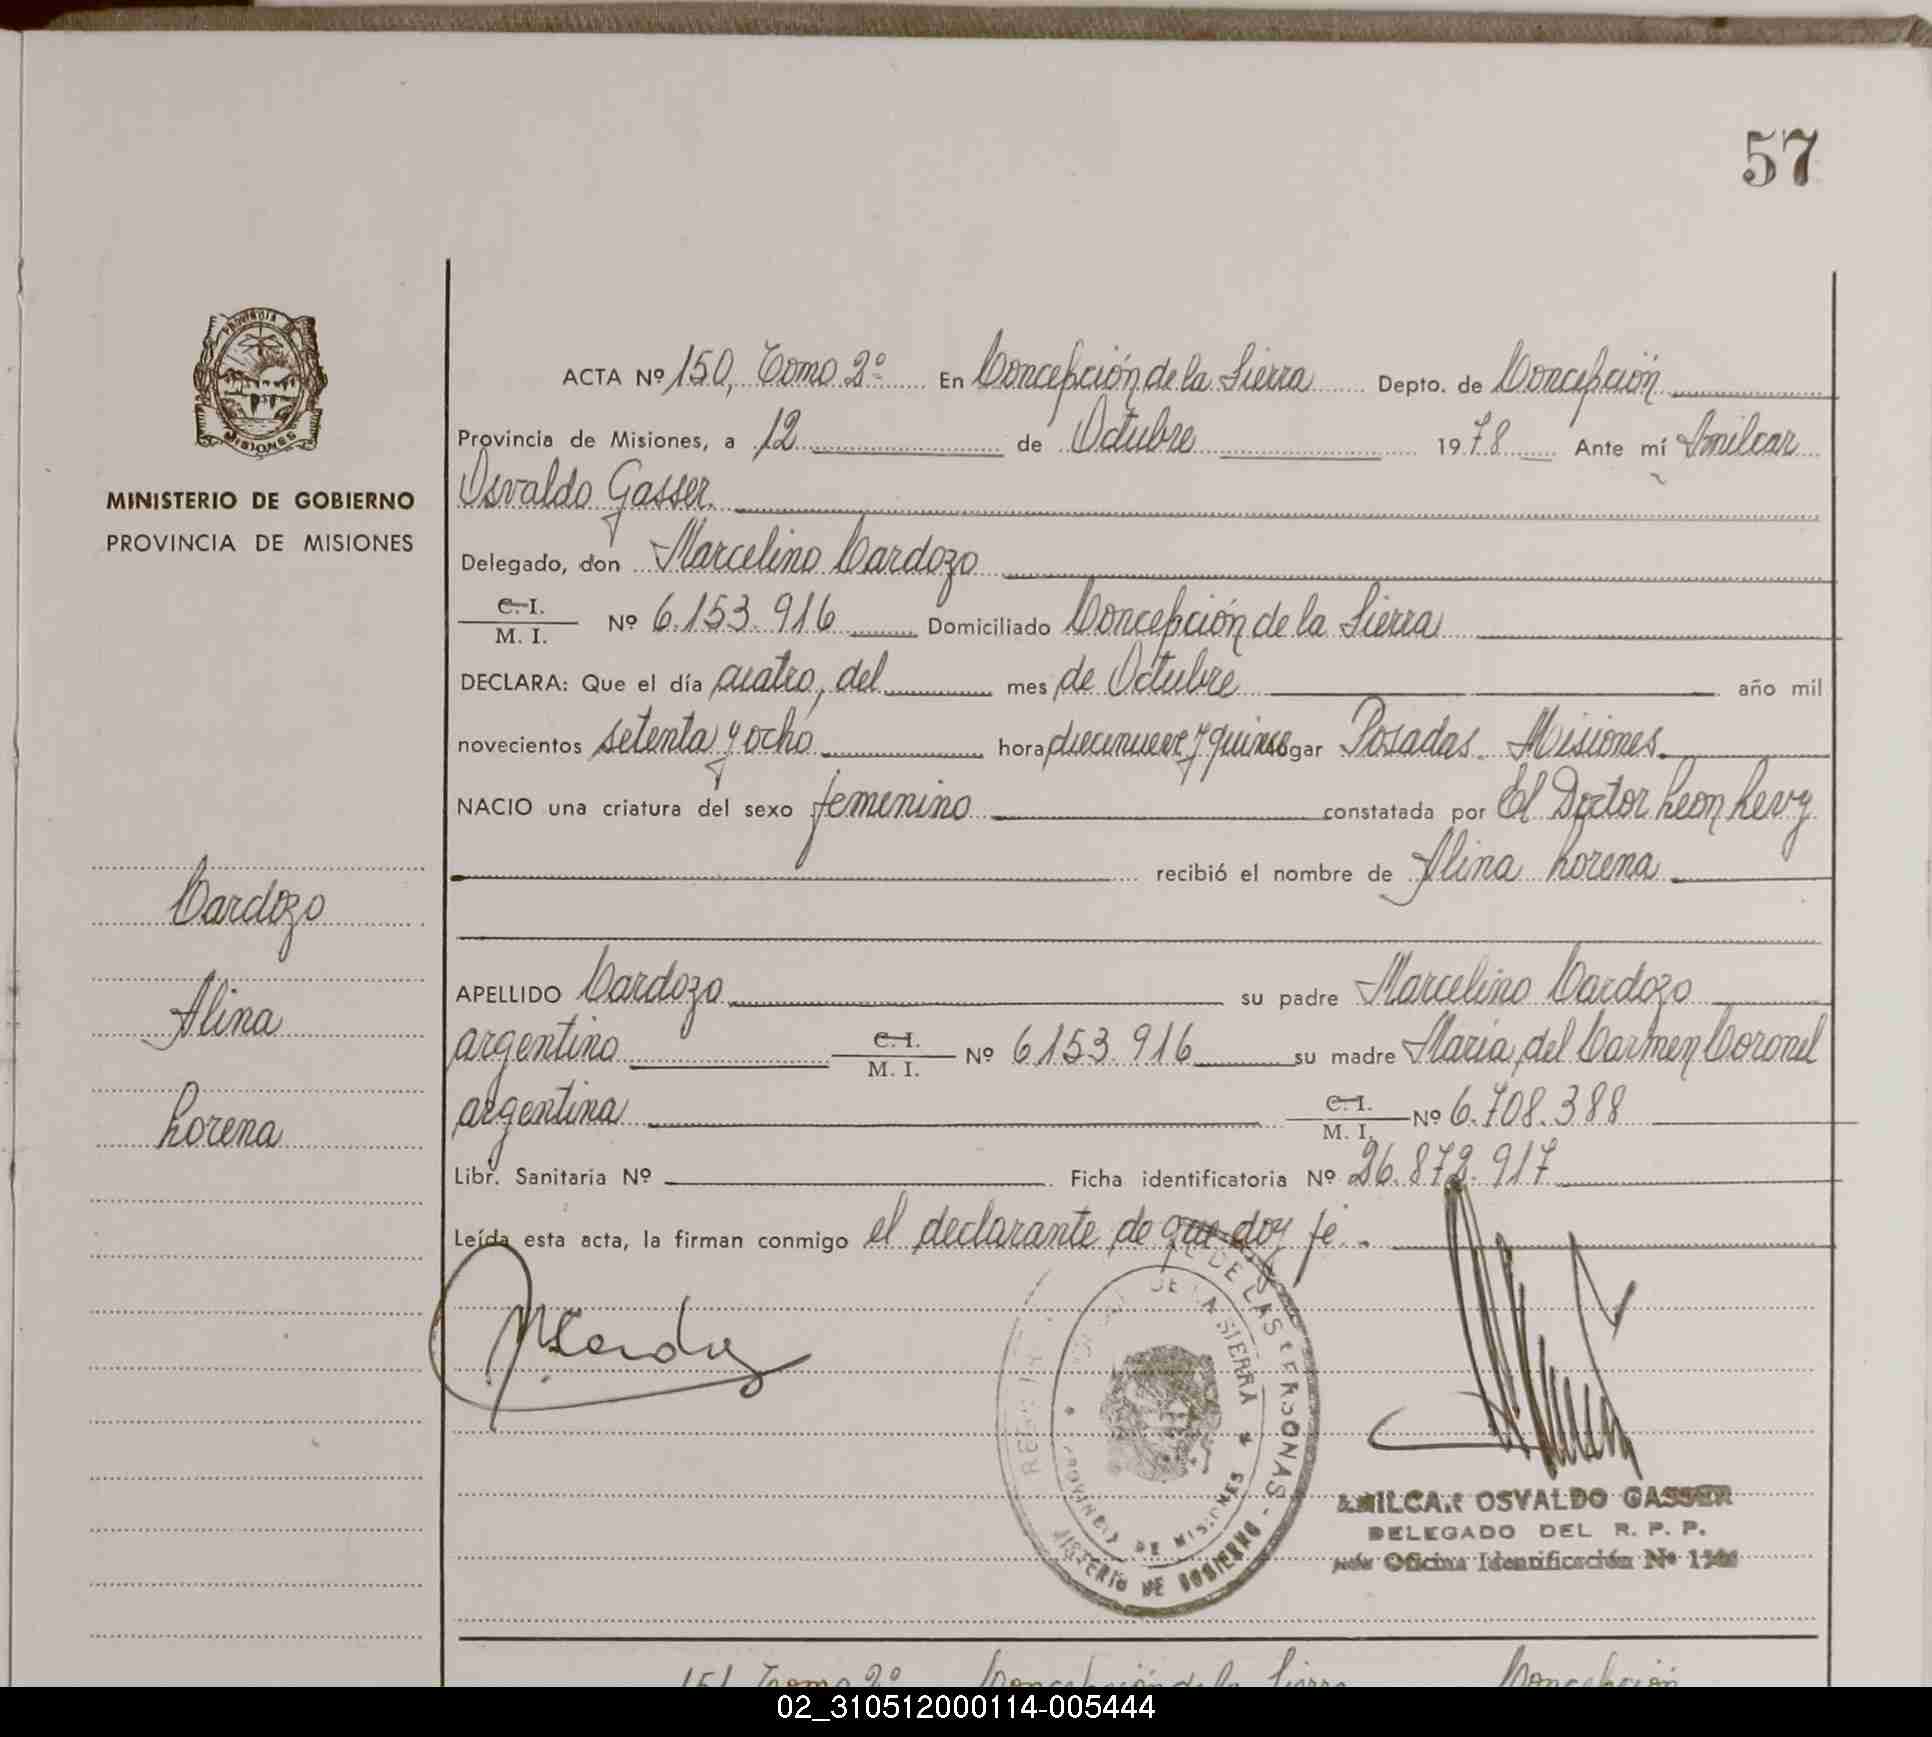 57
PROVINCIA DE
MISIONES
MINISTERIO DE GOBIERNO
PROVINCIA DE MISIONES
Cardozo
Alina
Lorena
ACTA Nº 150, Tomo 2º En Concepción de la Sierra Depto. de Concepción
Provincia de Misiones, a 12 de Octubre 1978 Ante mí Amilcar
Osvaldo Gasser
Delegado, don Marcelino Cardozo
C. I.
M. I. Nº 6.153.916 Domiciliado Concepción de la Sierra
DECLARA: Que el día cuatro, del mes de Octubre año mil
novecientos setenta y ocho hora diecinueve y quince lugar Posadas Misiones
NACIO una criatura del sexo femenino constatada por El Doctor Leon Levy
recibió el nombre de Alina Lorena
APELLIDO Cardozo su padre Marcelino Cardozo
argentino C. I.
M. I. Nº 6153.916 su madre Maria del Carmen Coronel
argentina C. I.
M. I. Nº 6.708.388
Libr. Sanitaria Nº Ficha identificatoria Nº 26.872.917
Leída esta acta, la firman conmigo el declarante de que doy fé.
DE LAS PERSONAS -
DE LA SIERRA
PROVINCIA DE MISIONES
MINISTERIO DE GOBIERNO
AMILCAR OSVALDO GASSER
DELEGADO DEL R. P. P.
Oficina Identificación Nº
151 Tomo 2º Concepción de la Sierra Concepción
02_310512000114-005444